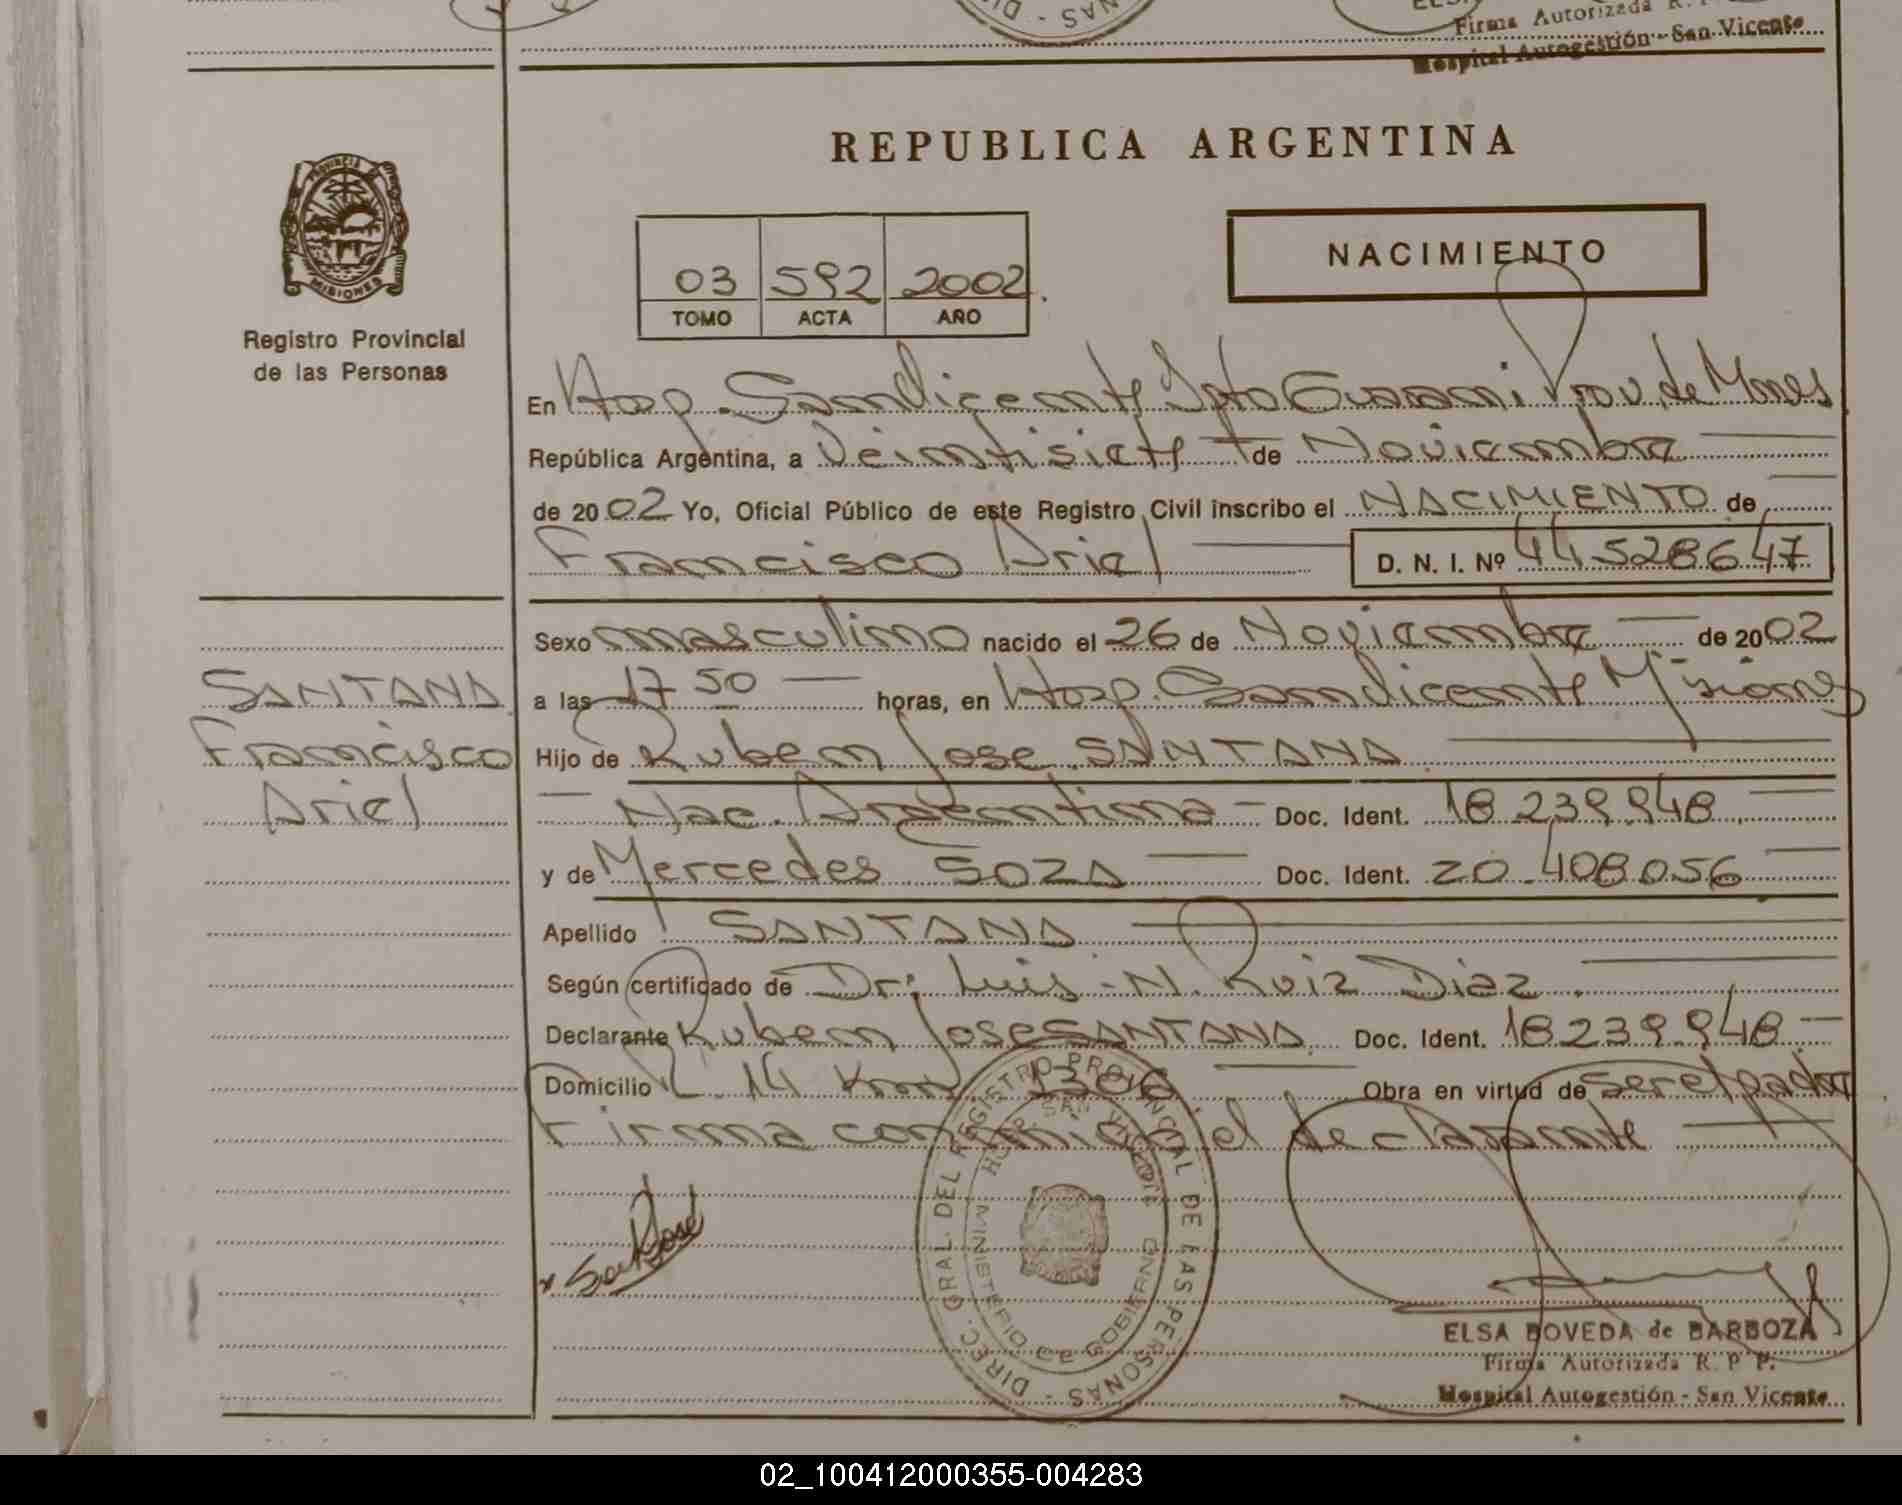 Firma Autorizada R. P.
Hospital Autogestión - San Vicente
PROVINCIA DE
MISIONES
Registro Provincial
de las Personas
REPUBLICA ARGENTINA
03 592 2002
TOMO ACTA AÑO
NACIMIENTO
En Hosp. San Vicente Dpto Guarani Prov. de Mnes
República Argentina, a Veintisiete de Noviembre
de 2002 Yo, Oficial Público de este Registro Civil inscribo el NACIMIENTO de
Francisco Ariel D. N. I. Nº 44528647
Sexo masculino nacido el 26 de Noviembre de 2002
SANTANA
a las 17 50 horas, en Hosp. San Vicente Misiones
Francisco
Hijo de Ruben Jose SANTANA
Ariel
Nac. Argentina Doc. Ident. 18.239.948
y de Mercedes SOZA Doc. Ident. 20.408.056
Apellido SANTANA
Según certificado de Dr: Luis N. Ruiz Diaz.
Declarante Ruben Jose SANTANA Doc. Ident. 18.239.948
Domicilio R. 14 Km 1306 Obra en virtud de ser el padre
Firma conmigo el declarante
DIREC. GRAL. DEL REGISTRO PROVINCIAL DE LAS PERSONAS
HOSP. SAN VICENTE
MINISTERIO DE GOBIERNO
San José
ELSA BOVEDA de BARBOZA
Firma Autorizada R. P. P.
Hospital Autogestión - San Vicente
02_100412000355-004283